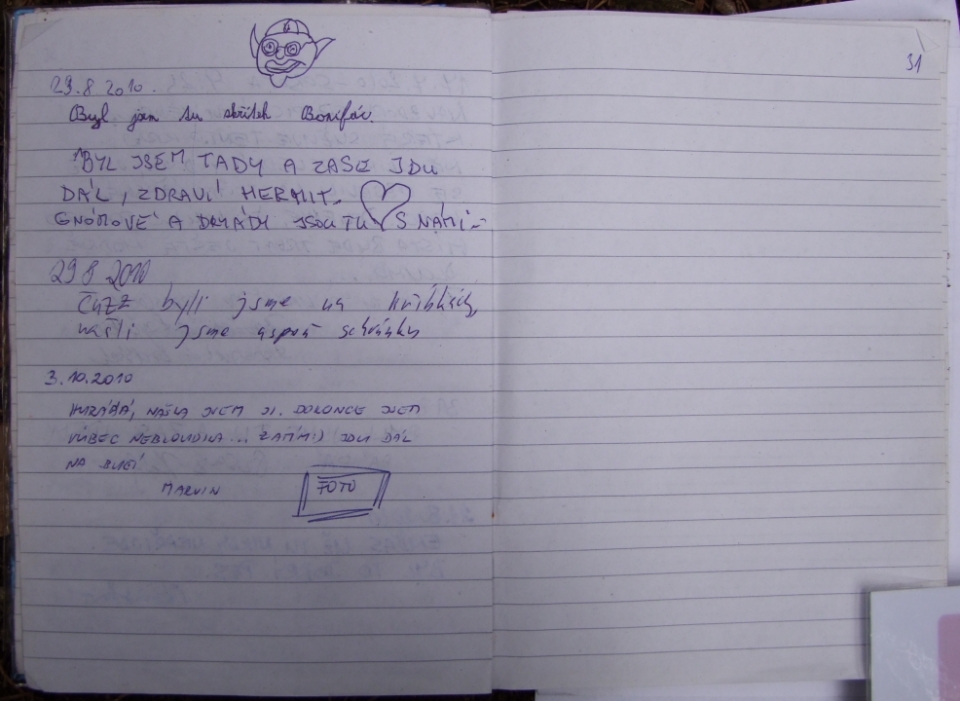 31
29.8.2010.
Byl jsem tu skřítek Bonifác.
BYL JSEM TADY A ZASE JDU
DÁL, ZDRAVÍ HERMIT.
GNÓMOVÉ A DRYÁDY JSOU TU S NÁMI..
29 8 2010
byli jsme na hříbkách,
našli jsme aspoň schránku
3.10.2010
HURÁÁÁ, NAŠLA JSEM JI. DOKONCE JSEM
VŮBEC NEBLOUDILA... ZATÍM:) JDU DÁL
NA
MARVIN
FOTO